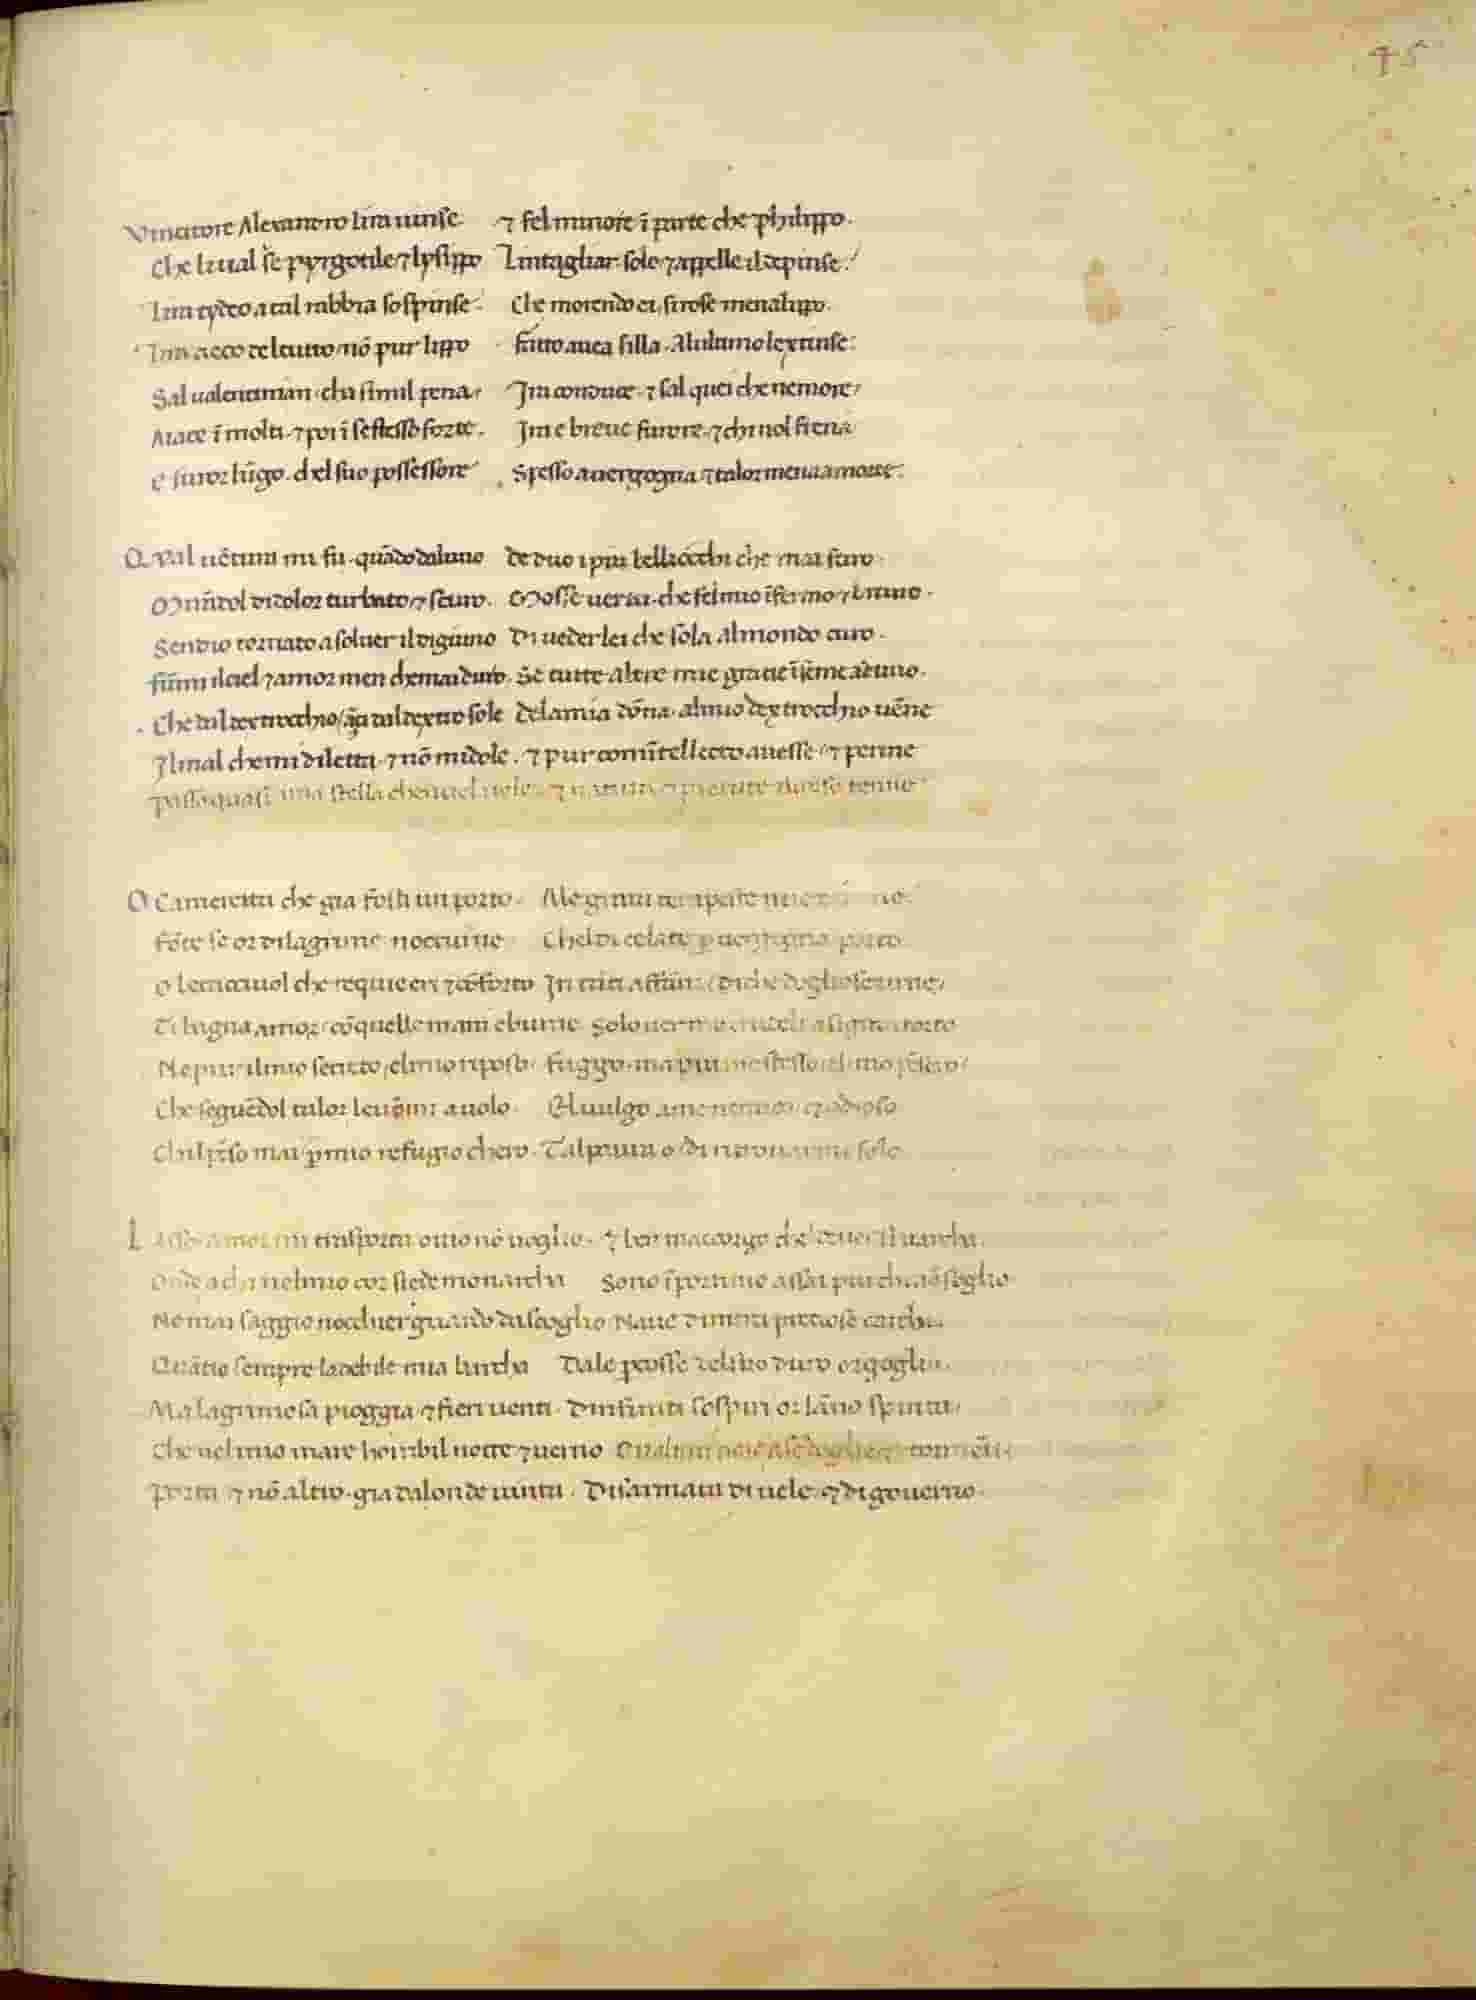 45
Vincitore Alexandro lira uinse. ⁊ fel minore ī parte che philippo.
Che li ual se pyrgotile ⁊ lysippo Lintagliar solo ⁊ appelle il depinse.
Lira tydeo a tal rabbia sospinse. Che morendo ei si rose menalippo.
Lira ceco del tutto nō pur lippo fatto auea silla. Alultimo lextinse.
Sal ualentinian. cha simil pena. Ira conduce. ⁊ sal quei che ne more
Aiace ī molti. ⁊ poi ī se stesso forte. Ira e breue furore. ⁊ chi nol frena
e furor lūgo. chel suo possessore Spesso a uergogna. ⁊ talor mena a morte.
Qual uētura mi fu. quādo daluno de duo i piu belli occhi che mai furo.
Mirādol di dolor turbato ⁊ scuro. Mosse uertu. che fel mio īfermo ⁊ bruno.
Sendio tornato a soluer il digiuno Di ueder lei che sola al mondo curo.
fūmi il ciel ⁊ amor men che mai duro. Se tutte altre mie gratie īsieme aduno.
Che dal dextrocchio āçi dal dextro sole dela mia dōna. al mio dextrocchio uēne
Il mal che mi diletta. ⁊ nō mi dole. ⁊ pur comītellecto auesse ⁊ penne
passo quasi una stella che nciel uole. ⁊ natura ⁊ pietate
O Cameretta che gia fosti un porto. Ale graui tempeste mie
fōte se or di lagrime nocturne Chel di celate p uergogna porto
o letticciuol che requie eri ⁊ cōforto In tanti affāni di che dogliose urne
Ti bagna amor. cō quelle mani eburne. Solo uer me crudeli a sigran torto
Ne pur il mio secreto. elmio riposo fuggo. ma piu me stesso. elmio pēsero
Che seguēdol talor leuōmi a uolo. El uulgo a me nemico. ⁊ odioso
Chil pēso mai. p mio refugio chero. Tal paura o di ritrouarmi solo
Lasso amor mi trasporta ouio nō uoglio. ⁊ ben maccorgo chel deuer si uarcha.
Onde a chi nel mio cor siede monarcha Sono īportuno assai piu chi nō soglio
Ne mai saggio nocchier guardo da scoglio Naue di merci pretiose carcha.
Quātio sempre la debile mia barcha Dale pcosse del suo duro orgoglio.
Ma lagrimosa pioggia. ⁊ fieri uenti. Dinfiniti sospiri or lāno spinta.
Che nel mio mare horribil notte ⁊ uerno
Porta. ⁊ nō altro. gia dalonde uinta. Disarmata di uele. ⁊ di gouerno.